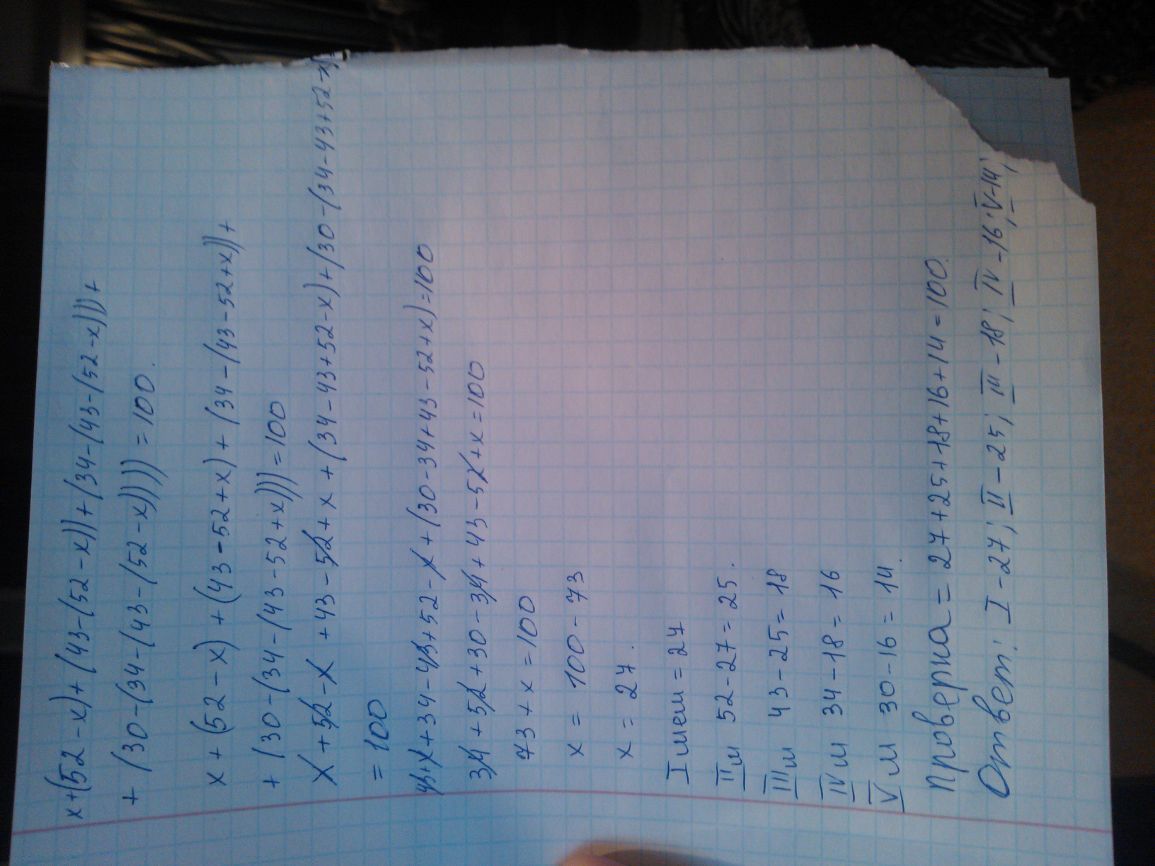 x+(52-x)+(43-(52-x))+(34-(43-(52-x)))+
+(30-(34-(43-(52-x))))=100.
x+(52-x)+(43-52+x)+(34-(43-52+x))+
+(30-(34-(43-52+x)))=100
x+52-x+43-52+x+(34-43+52-x)+(30-(34-43+52-x)
=100
43+x+34-43+52-x+(30-34+43-52+x)=100
34+52+30-34+43-52+x=100
73+x=100
x=100-73
x=27.
I мем=27
II м 52-27=25.
III м 43-25=18
IV м 34-18=16
V м 30-16=14.
Проверка=27+25+18+16+14=100.
Ответ: I-27; II-25; III-18; IV-16; V-14;